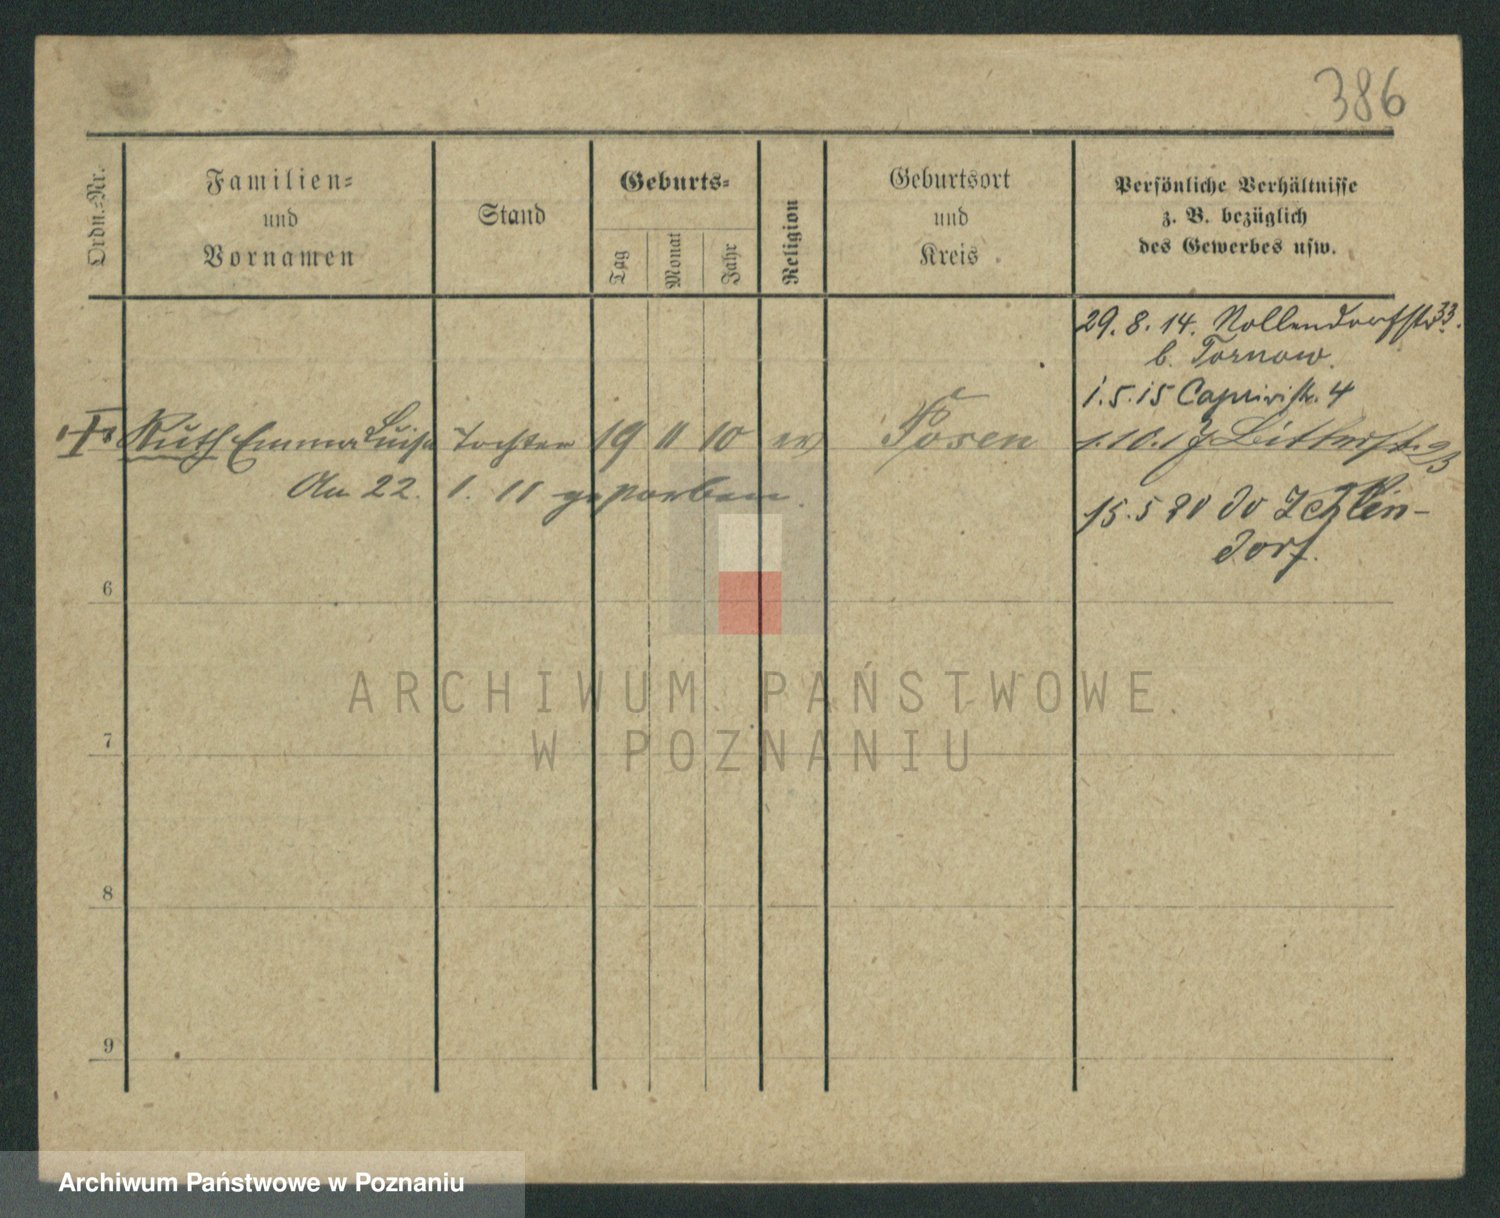 386
Ordn.-Nr.
Familien-
und
Vornamen
Stand
Geburts-
Tag
Monat
Jahr
Religion
Geburtsort
und
Kreis
Persönliche Verhältnisse
z. B. bezüglich
des Gewerbes usw.
29. 8. 14. Nollendorfstr 33.
b. Tornow.
1. 5. 15 Caprivistr. 4
Ruth Emma Luise Tochter 19 11 10 ev Posen
1. 10. 17
An 22. 1. 11 gestorben.
15. 5 20
Zehlen-
dorf.
6
7
8
9
ARCHIWUM PAŃSTWOWE
W POZNANIU
Archiwum Państwowe w Poznaniu